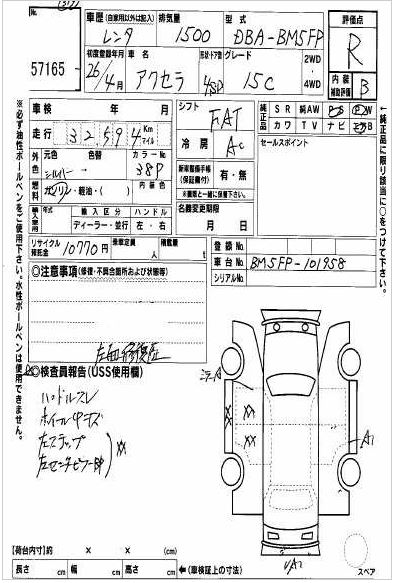 No.
57165
車歴 (自家用以外は記入)
レンタ
排気量
1500
型式
DBA-BM5FP
評価点
R
初度登録年月
26/4月
車名
アクセラ
形状・ドア数
4SD
グレード
15C
2WD
4WD
内装補助評価
B
車検 年 月
走行 32,594 Km マイル
外色 元色 色替 カラーNo.
シルバー 38P
燃料 ガソリン・軽油・( ) 内装色
輸入車 年式 輸入区分 ハンドル
ディーラー・並行 左・右
リサイクル預託金 10770円
乗車定員 人
積載量 t
シフト
FAT
冷房
AC
新車整備手帳(保証書付) 有・無
※書類と一緒に保管下さい。
名義変更期限
月 日
純正品 SR 純AW PS PW
純正品 カワ TV ナビ エアB
セールスポイント
登録No.
車台No. BM5FP-101958
シリアルNo.
◎注意事項 (修復・不具合箇所および状態等)
左面修復歴
◎検査員報告(USS使用欄)
ハンドルスレ
ホイールキズ
左ステップ
左センターピラー XX
XX
XX
XX
A1
VA1
スペア
【荷台内寸】約 × × (cm)
長さ cm 幅 cm 高さ cm ←(車検証上の寸法)
※必ず油性ボールペンをご使用下さい。水性ボールペンは使用できません。
←純正品に限り該当に○をつけて下さい。